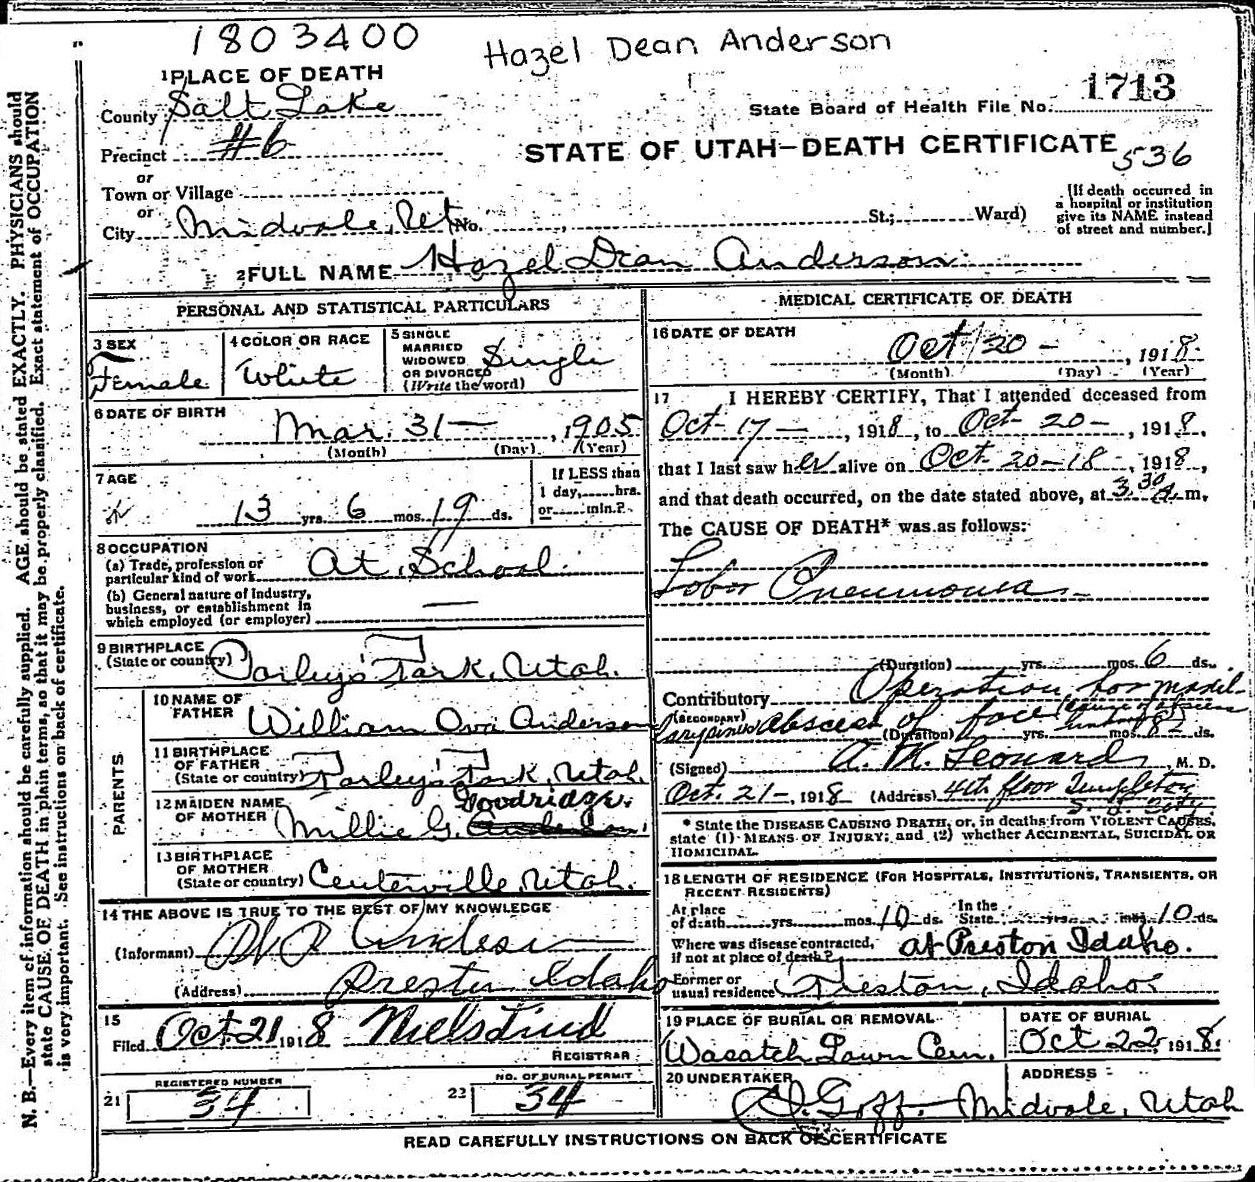 1803400
Hazel Dean Anderson
1 PLACE OF DEATH
1713
County Salt Lake
State Board of Health File No.
Precinct #6
STATE OF UTAH—DEATH CERTIFICATE
536
or
Town or Village
or
City Midvale, Ut No. St.; Ward)
[If death occurred in
a hospital or institution
give its NAME instead
of street and number.]
2 FULL NAME Hazel Dean Anderson
PERSONAL AND STATISTICAL PARTICULARS
3 SEX
Female
4 COLOR OR RACE
White
5 SINGLE
MARRIED
WIDOWED
OR DIVORCED
(Write the word)
Single
6 DATE OF BIRTH
Mar. 31 — , 1905
(Month) (Day) (Year)
7 AGE
13 yrs. 6 mos. 19 ds.
If LESS than
1 day,.....hrs.
or.....min.?
8 OCCUPATION
(a) Trade, profession or
particular kind of work At School
(b) General nature of Industry,
business, or establishment in
which employed (or employer) —
9 BIRTHPLACE
(State or country) Parley's Park, Utah.
PARENTS
10 NAME OF
FATHER William Anderson
11 BIRTHPLACE
OF FATHER
(State or country) Parley's Park, Utah.
12 MAIDEN NAME
OF MOTHER Millie G. Goodridge.
13 BIRTHPLACE
OF MOTHER
(State or country) Centerville, Utah.
14 THE ABOVE IS TRUE TO THE BEST OF MY KNOWLEDGE
(Informant)
(Address) Preston Idaho
15
Filed Oct. 21 1918
REGISTRAR
21 REGISTERED NUMBER
34
22 NO. OF BURIAL PERMIT
34
MEDICAL CERTIFICATE OF DEATH
16 DATE OF DEATH
Oct 20 — , 1918.
(Month) (Day) (Year)
17 I HEREBY CERTIFY, That I attended deceased from
Oct-17 — , 1918, to Oct-20- , 1918,
that I last saw her alive on Oct. 20-18- , 1918,
and that death occurred, on the date stated above, at 3.30 A.m.
The CAUSE OF DEATH* was as follows:
Lobor Pneumonia
(Duration) yrs. mos. 6 ds.
Contributory Operation for
(SECONDARY) abscess of face
(Duration) yrs. mos. 8 ds.
(Signed) A. M. Leonard, M. D.
Oct. 21-, 1918 (Address) 4th floor Templeton
S. L. City
* State the DISEASE CAUSING DEATH, or, in deaths from VIOLENT CAUSES,
state (1) MEANS OF INJURY; and (2) whether ACCIDENTAL, SUICIDAL OR
HOMICIDAL.
18 LENGTH OF RESIDENCE (FOR HOSPITALS, INSTITUTIONS, TRANSIENTS, OR
RECENT RESIDENTS)
At place
of death yrs. mos. 10 ds.
In the
State yrs. mos. 10 ds.
Where was disease contracted,
if not at place of death? at Preston Idaho.
Former or
usual residence Preston, Idaho
19 PLACE OF BURIAL OR REMOVAL
Wasatch Lawn Cem.
DATE OF BURIAL
Oct 22, 1918.
20 UNDERTAKER
Goff
ADDRESS
Midvale, Utah
READ CAREFULLY INSTRUCTIONS ON BACK OF CERTIFICATE
N. B.—Every item of information should be carefully supplied. AGE should be stated EXACTLY. PHYSICIANS should
state CAUSE OF DEATH in plain terms, so that it may be properly classified. Exact statement of OCCUPATION
is very important. See instructions on back of certificate.